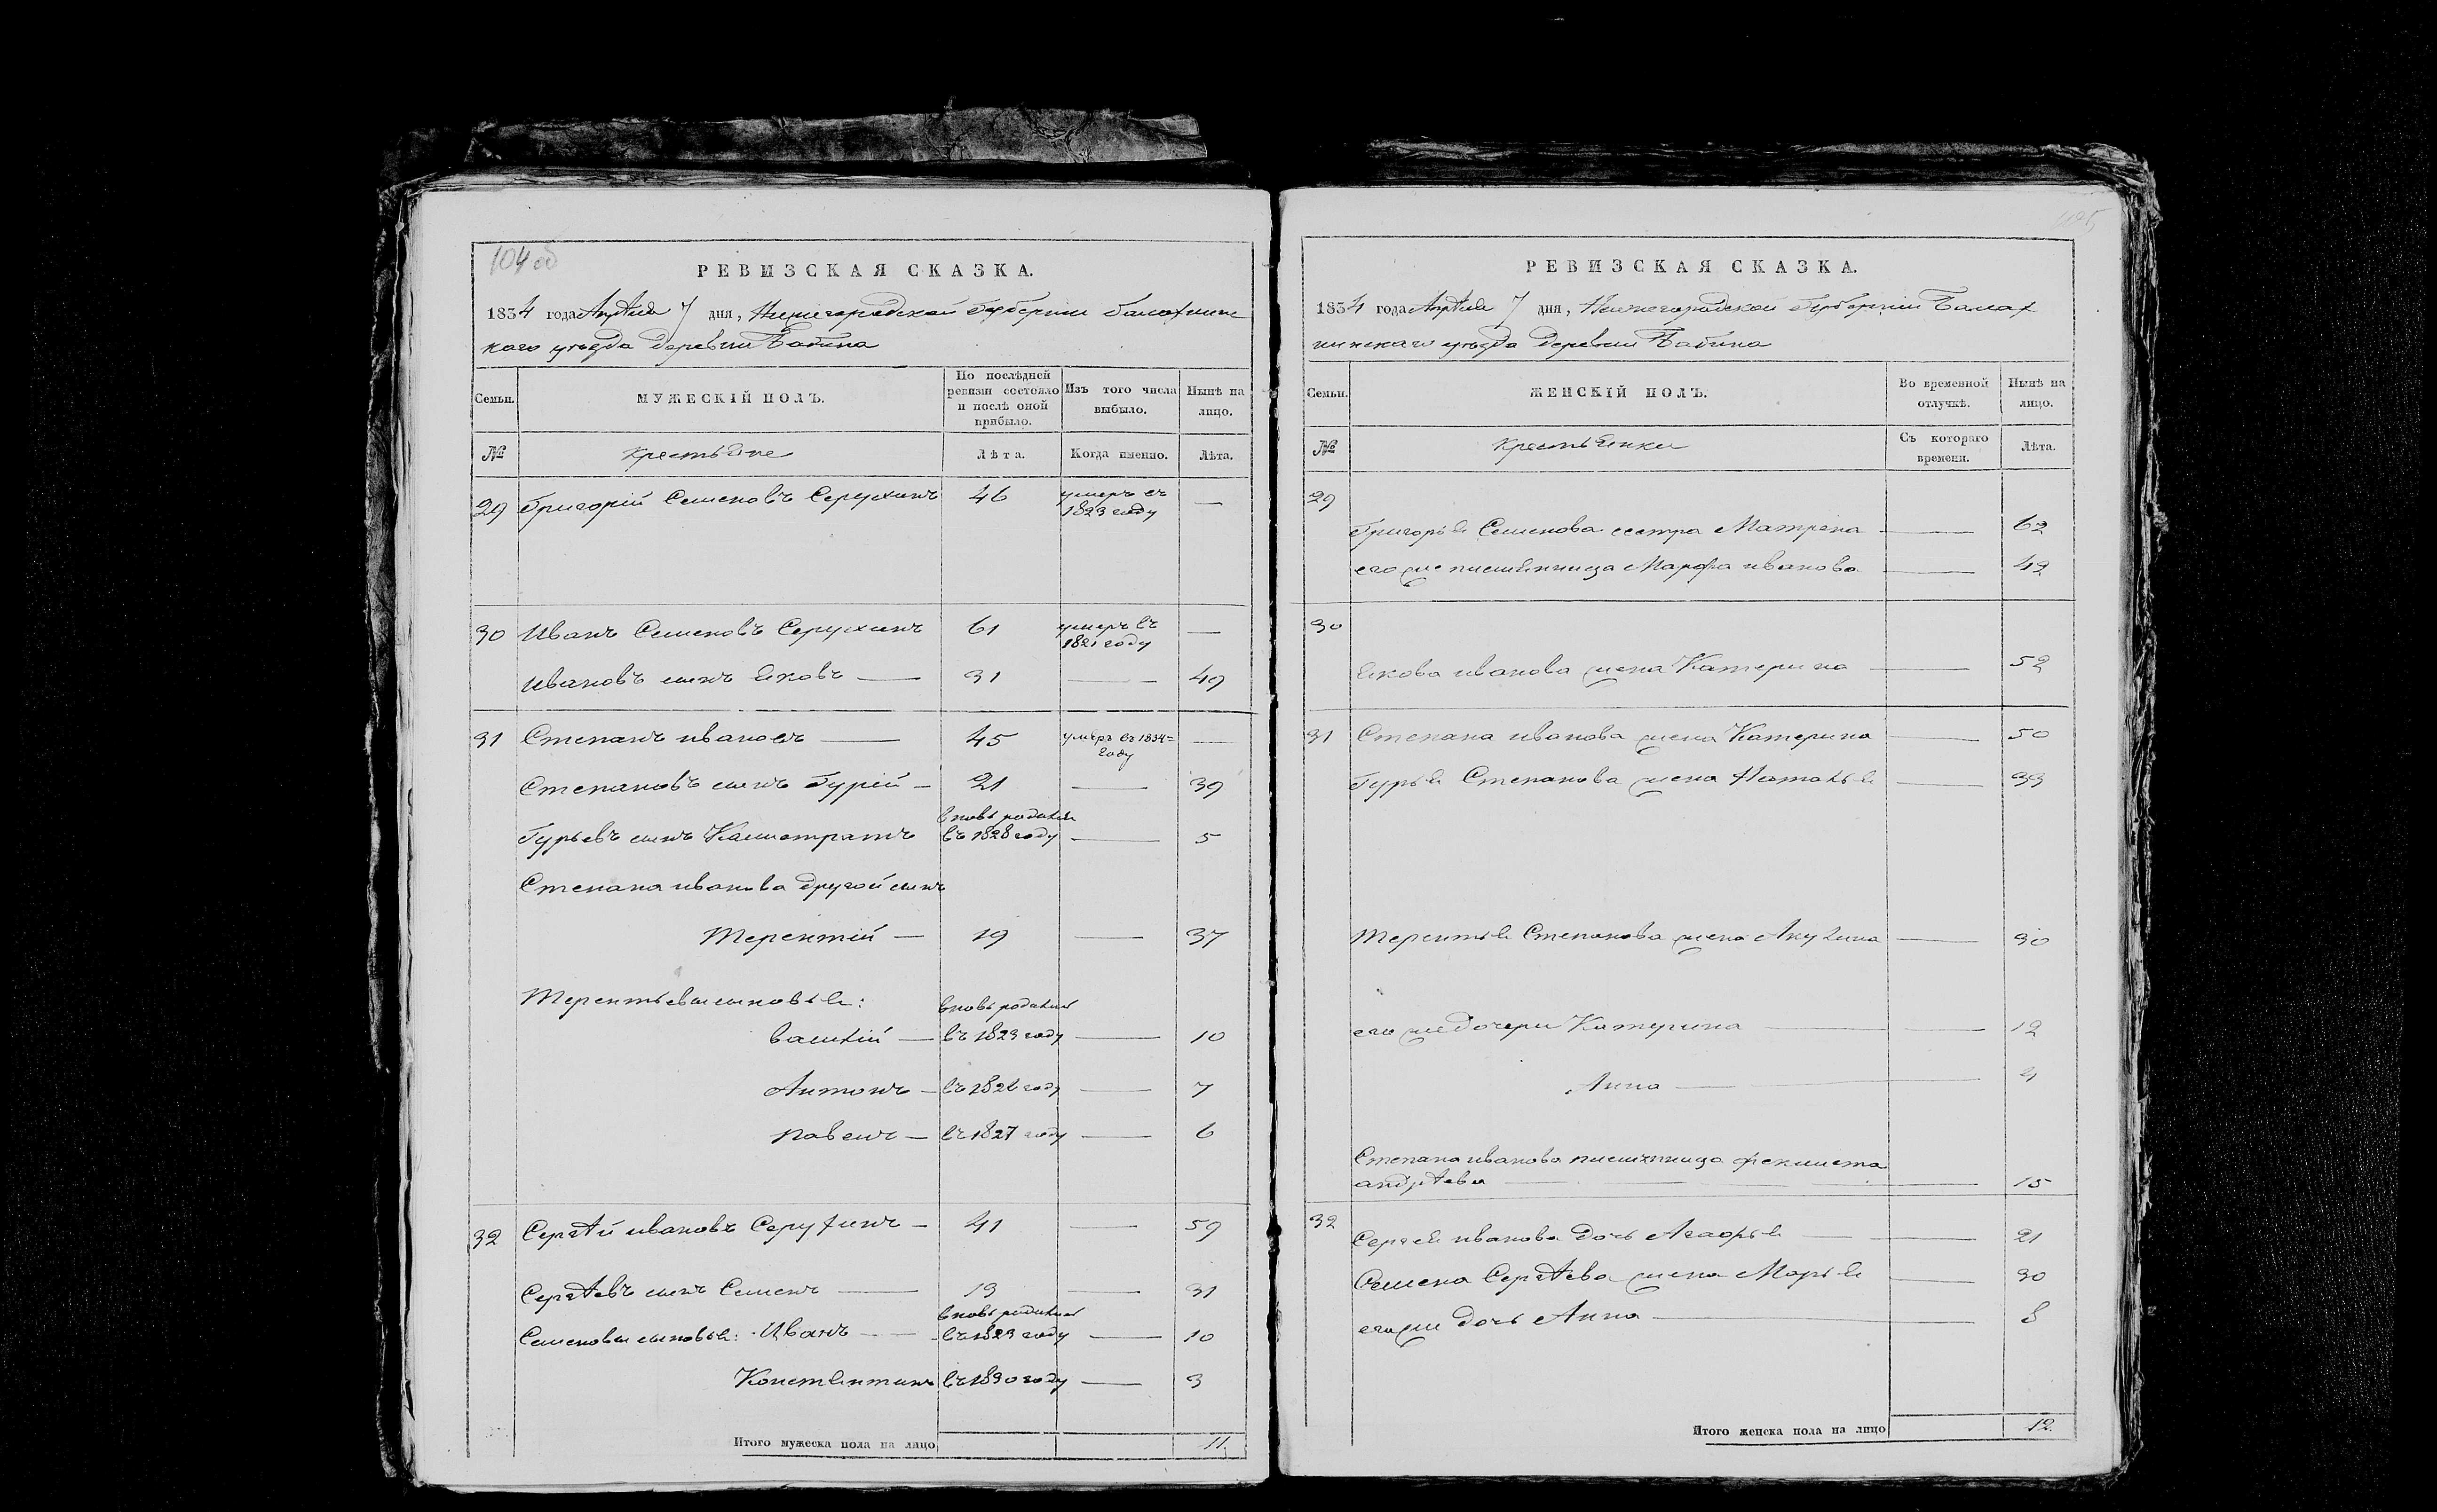 104 об
РЕВИЗСКАЯ СКАЗКА.
1834 года Апрѣля 7 дня, Нижегородской Губернии балахнин
каго уѣзда деревни Бабина
Семьи.
МУЖЕСКІЙ ПОЛЪ.
По послѣдней ревизіи состояло и послѣ оной прибыло.
Изъ того числа выбыло.
Нынѣ на лицо.
№
крестьяне
Лѣта.
Когда именно.
Лѣта.
29 Григорій Семеновъ Серухинъ 46 умеръ въ 1823 году —
30 Иванъ Семеновъ Серухинъ 61 умеръ въ 1821 году —
Ивановъ сынъ Яковъ — 31 — 49
31 Степанъ ивановъ — 45 умеръ въ 1834= году —
Степановъ сынъ Гурій — 21 — 39
Гурьевъ сынъ Калистратъ вновь родился въ 1828 году — 5
Степана иванова другой сынъ
Терентій — 19 — 37
Терентьевы сыновья: вновь родился
василій — въ 1823 году — 10
Антонъ — въ 1826 году — 7
павелъ — въ 1827 году — 6
32 Сергѣй ивановъ Серухинъ — 41 — 59
Сергѣевъ сынъ Семенъ — 13 — 31
вновь родился
Семеновы сыновья: Иванъ — въ 1823 году — 10
Констянтинъ въ 1830 году — 3
Итого мужеска пола на лицо 11.
105
РЕВИЗСКАЯ СКАЗКА.
1834 года Апрѣля 7 дня, Нижегородской Губернии Балах
нинскаго уѣзда деревни Бабина
Семьи.
ЖЕНСКІЙ ПОЛЪ.
Во временной отлучкѣ.
Нынѣ на лицо.
№
крестьянки
Съ котораго времени.
Лѣта.
29
Григорья Семенова сестра Матрена — 62
его же племянница Марфа иванова — 42
30
Якова иванова жена Катерина — 52
31 Степана иванова жена Катерина — 50
Гурья Степанова жена Наталья — 33
Терентья Степанова жена Акулина — 30
его же дочери Катерина — 12
Анна — 4
Степана иванова племянница феклиста
андрѣева — 15
32
Сергея иванова дочь Агафья — 21
Семена Сергѣева жена Марья — 30
его же дочь Анна — 8
Итого женска пола на лицо 12.